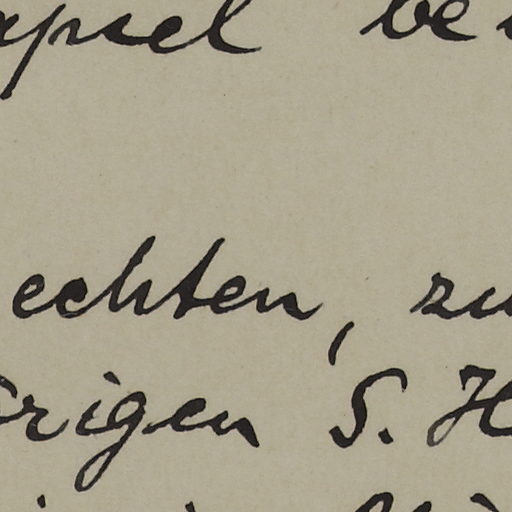 apsel be
echten, zu
örigen S. H